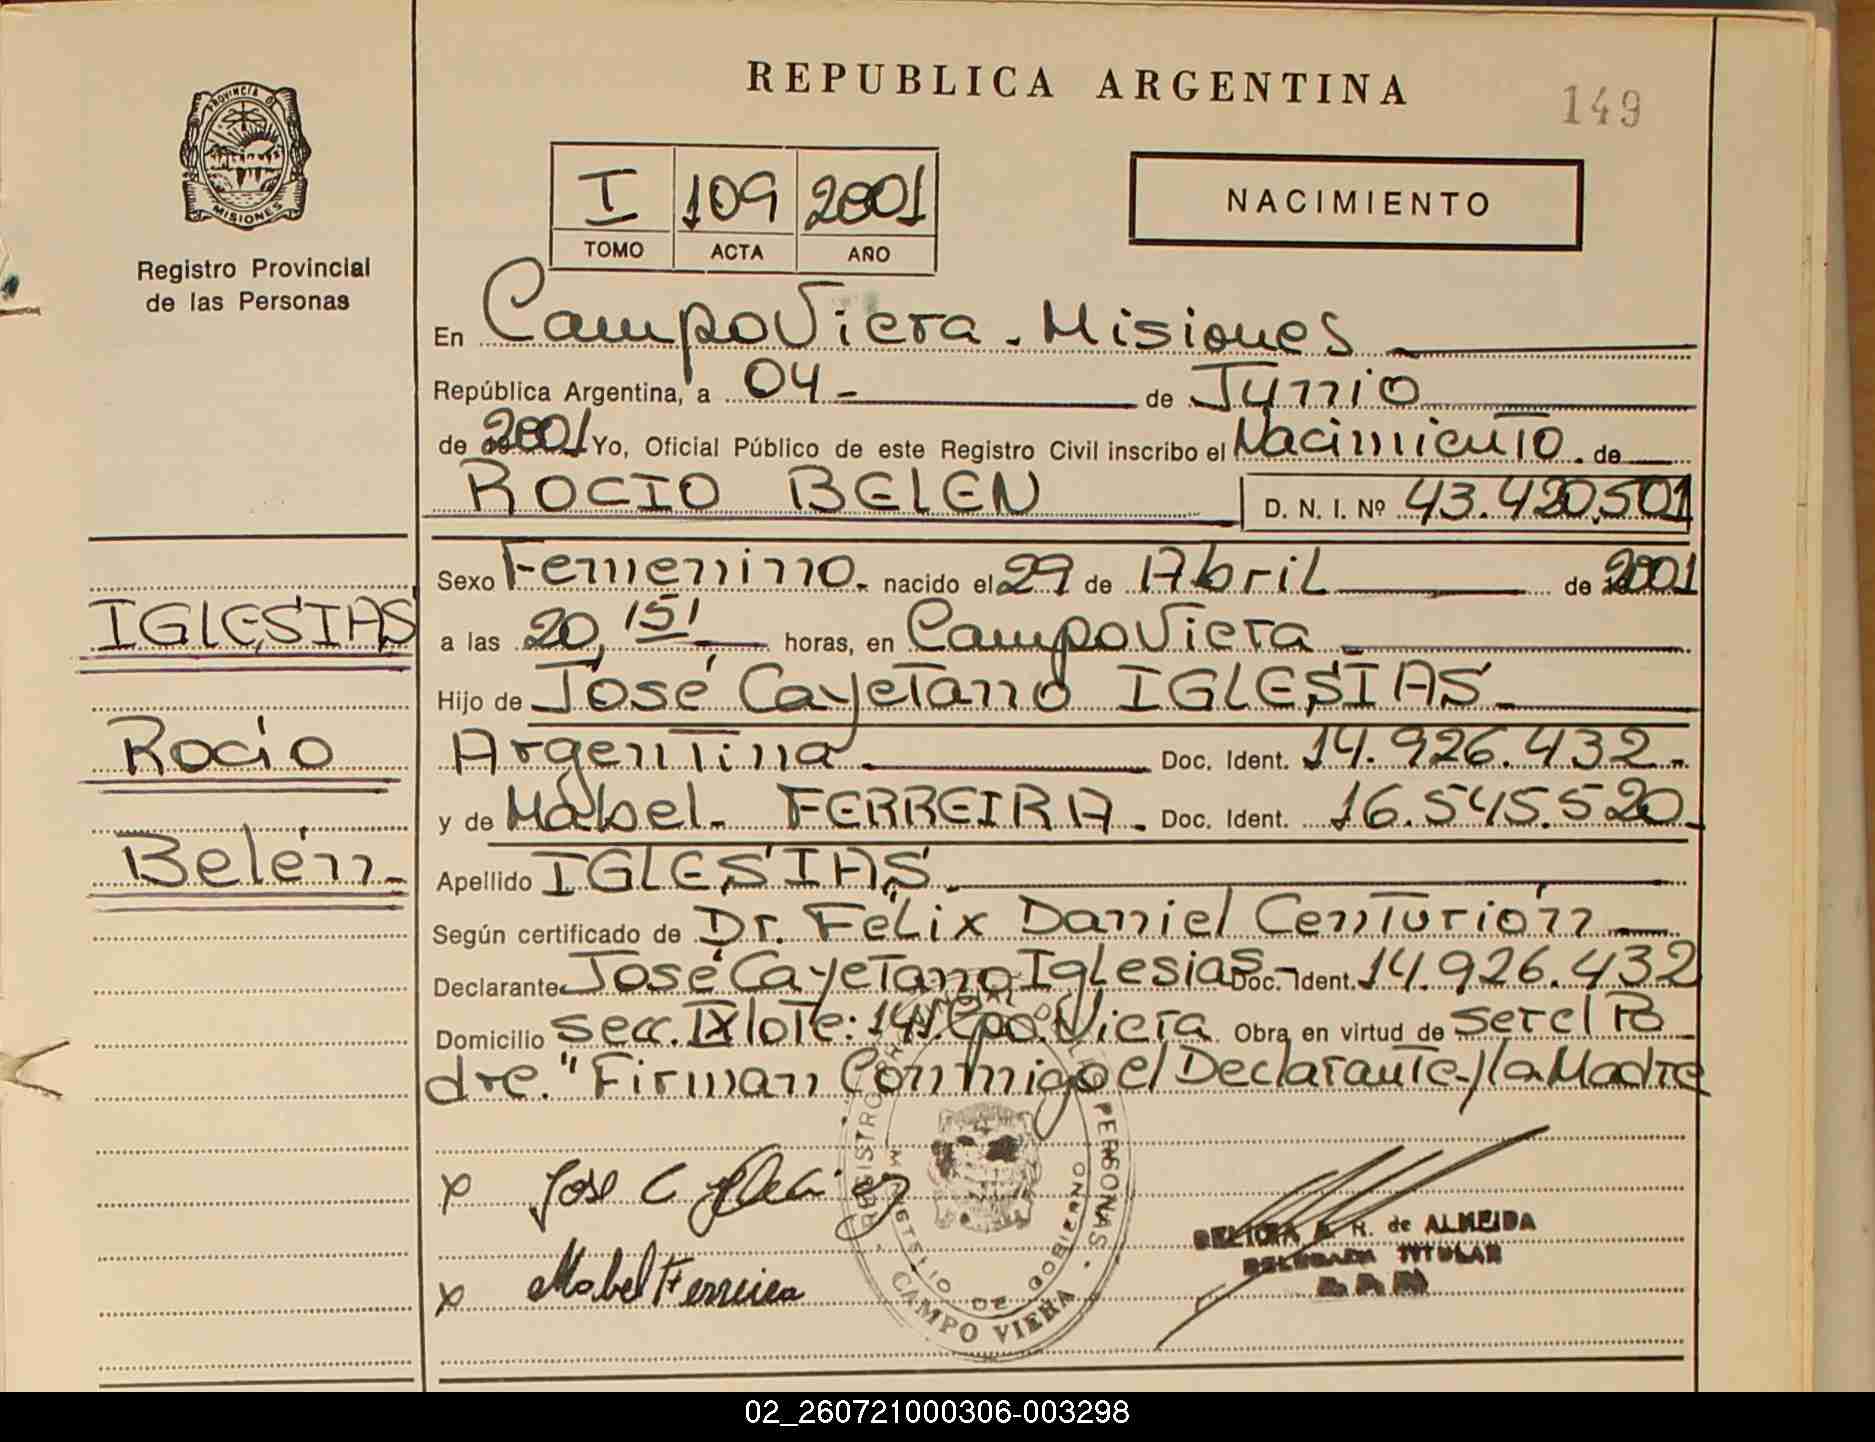 REPUBLICA ARGENTINA
149
PROVINCIA DE
MISIONES
Registro Provincial
de las Personas
I 109 2001
TOMO ACTA AÑO
NACIMIENTO
En Campo Viera - Misiones
República Argentina, a 04 - de Junio
de 2001 Yo, Oficial Público de este Registro Civil inscribo el Nacimiento de
ROCIO BELEN D. N. I. Nº 43.420.501
Sexo Femenino. nacido el 29 de Abril de 2001
a las 20,15' horas, en Campo Viera
Hijo de José Cayetano IGLESIAS.
Argentina Doc. Ident. 14.926.432.-
y de Mabel. FERREIRA. Doc. Ident. 16.545.520.
Apellido IGLESIAS.
Según certificado de Dr. Félix Daniel Centurión
Declarante José Cayetano Iglesias- Doc. Ident. 14.926.432
Domicilio secc. IX lote: 141. Cpo. Viera Obra en virtud de ser el Pa
dre. "Firman Conmigo el Declarante y la Madre
IGLESIAS
Rocio
Belén
x Jose C Iglesias
x Mabel Ferreira
REGISTRO PROVINCIAL DE LAS PERSONAS
CAMPO VIERA
R. de ALMEIDA
DELEGADA TITULAR
02_260721000306-003298